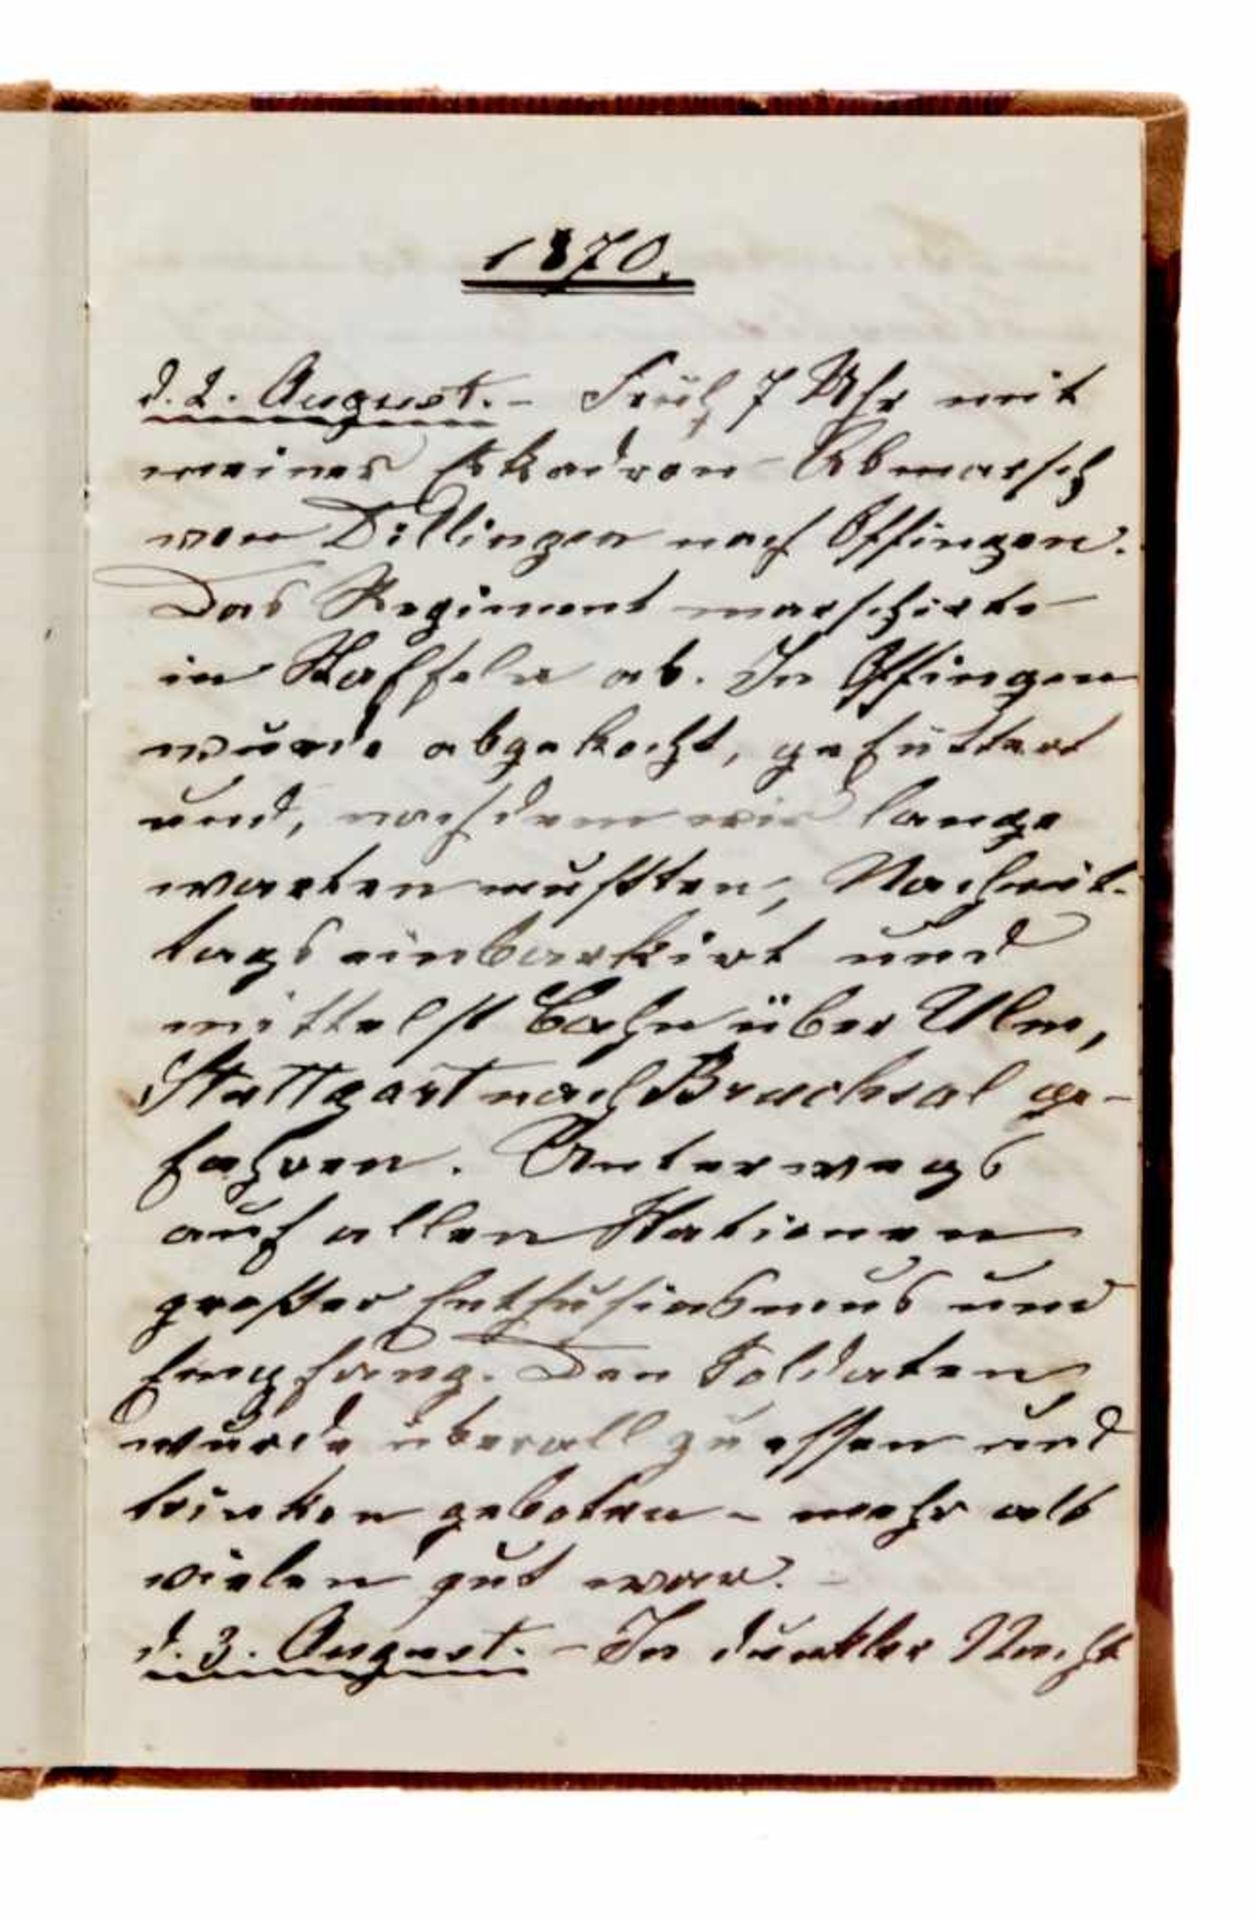 1870.
d. 2. August. – Früh 7 Uhr mit
meiner Eskadron Abmarsch
von Dillingen nach Offingen.
Das Regiment marschirte
in Staffeln ab. In Offingen
wurde abgekocht, gefüttert
und, nachdem wir lange
warten mußten, Nachmit-
tags einbarkirt und
mittelst Bahn über Ulm,
Stuttgart nach Bruchsal ge-
fahren. Unterwegs
auf allen Stationen
großer Enthusiasmus und
Empfang. Den Soldaten
wurde überall zu essen und
trinken geboten – mehr als
vielen gut war. –
d. 3. August. – In dunkler Nacht